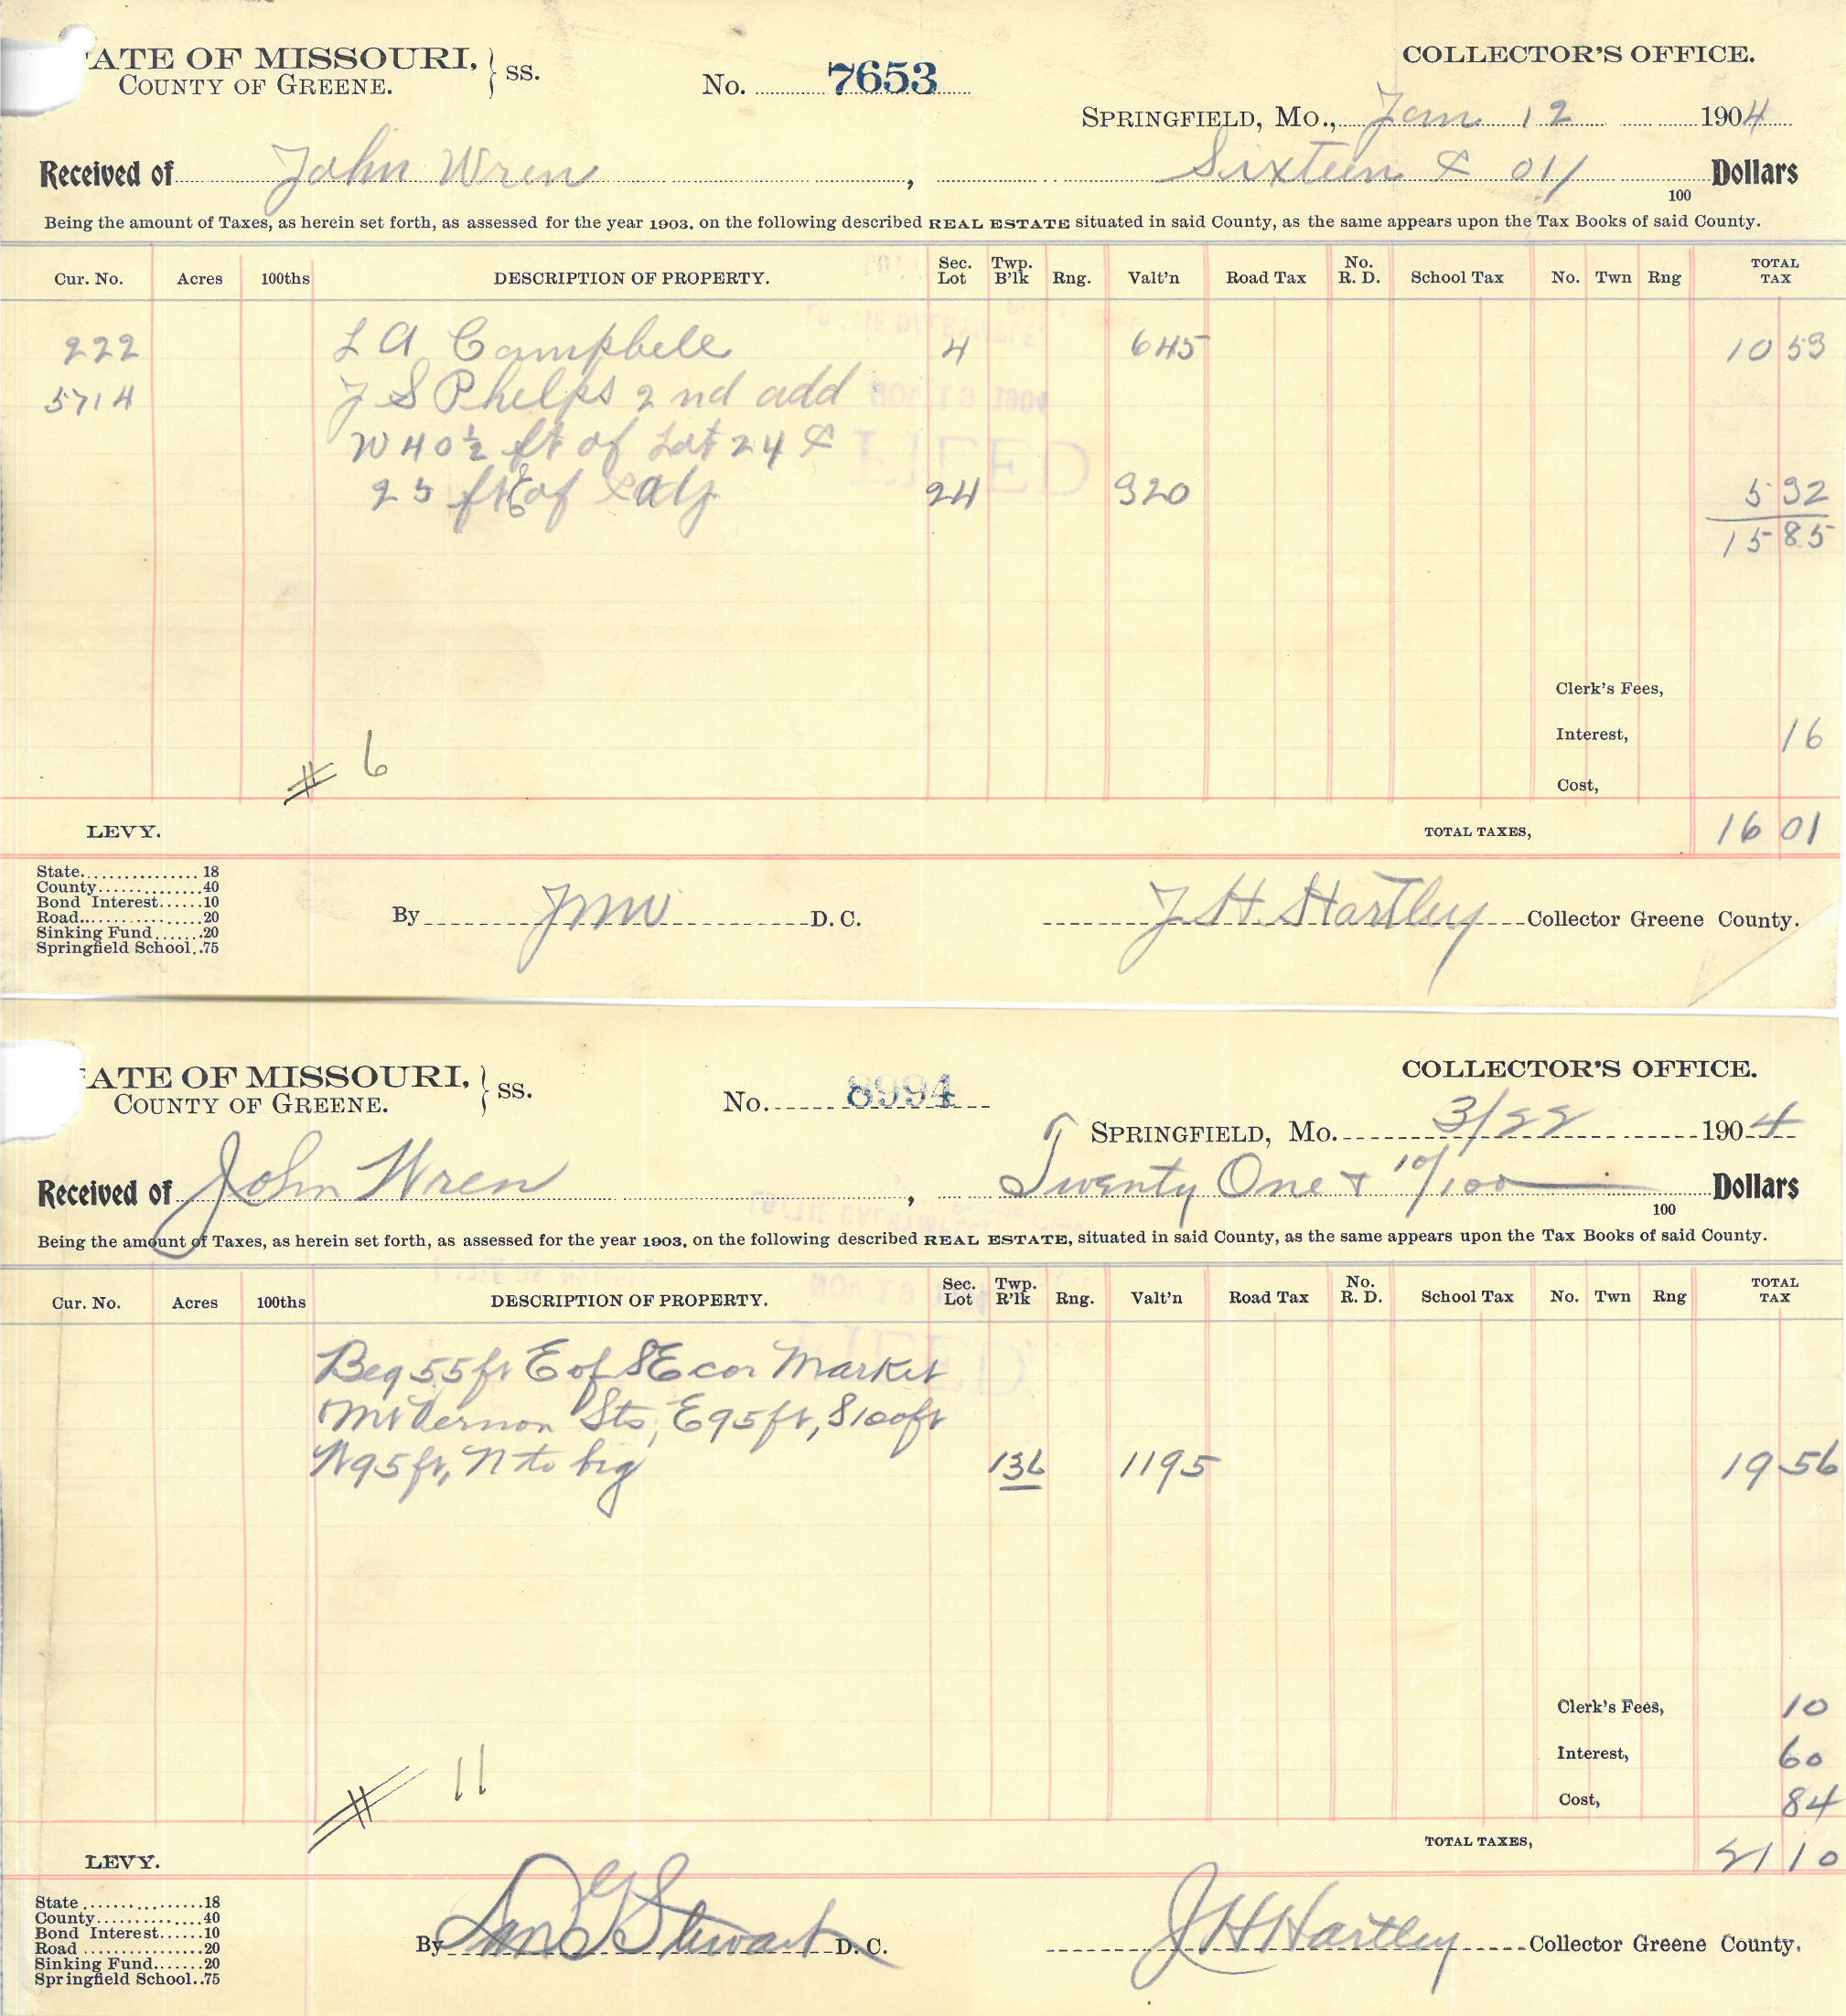 ATE OF MISSOURI, } SS.
COUNTY OF GREENE.
No. 7653
COLLECTOR'S OFFICE.
SPRINGFIELD, MO., Jan 12 1904
Received of John Wren, Sixteen & 01/100 Dollars
Being the amount of Taxes, as herein set forth, as assessed for the year 1903, on the following described REAL ESTATE situated in said County, as the same appears upon the Tax Books of said County.
Cur. No. Acres 100ths DESCRIPTION OF PROPERTY. Sec. Lot Twp. B'lk Rng. Valt'n Road Tax No. R. D. School Tax No. Twn Rng TOTAL TAX
222 L A Campbell 4 645 10 59
5714 J S Phelps 2nd add
W 40 1/2 ft of Lot 24 &
25 ft of 24 320 5 32
15 85
Clerk's Fees,
Interest, 16
# 6
Cost,
LEVY. TOTAL TAXES, 16 01
State................ 18
County.............40
Bond Interest......10
Road...............20
Sinking Fund......20
Springfield School..75
By JMW D. C. J H Hartley Collector Greene County.
ATE OF MISSOURI, } SS.
COUNTY OF GREENE.
No. 8994
COLLECTOR'S OFFICE.
SPRINGFIELD, MO. 3/22 1904
Received of John Wren, Twenty One + 10/100 100 Dollars
Being the amount of Taxes, as herein set forth, as assessed for the year 1903, on the following described REAL ESTATE, situated in said County, as the same appears upon the Tax Books of said County.
Cur. No. Acres 100ths DESCRIPTION OF PROPERTY. Sec. Lot Twp. R'lk Rng. Valt'n Road Tax No. R. D. School Tax No. Twn Rng TOTAL TAX
Beg 55 ft E of SE cor Market
Mt Vernon Sts, E 95 ft, S 100 ft
W 95 ft, N to beg 136 1195 19 56
Clerk's Fees, 10
Interest, 60
# 11
Cost, 84
TOTAL TAXES, 21 10
LEVY.
State................18
County.............40
Bond Interest......10
Road...............20
Sinking Fund.......20
Springfield School..75
By Stewart D. C. J H Hartley Collector Greene County.